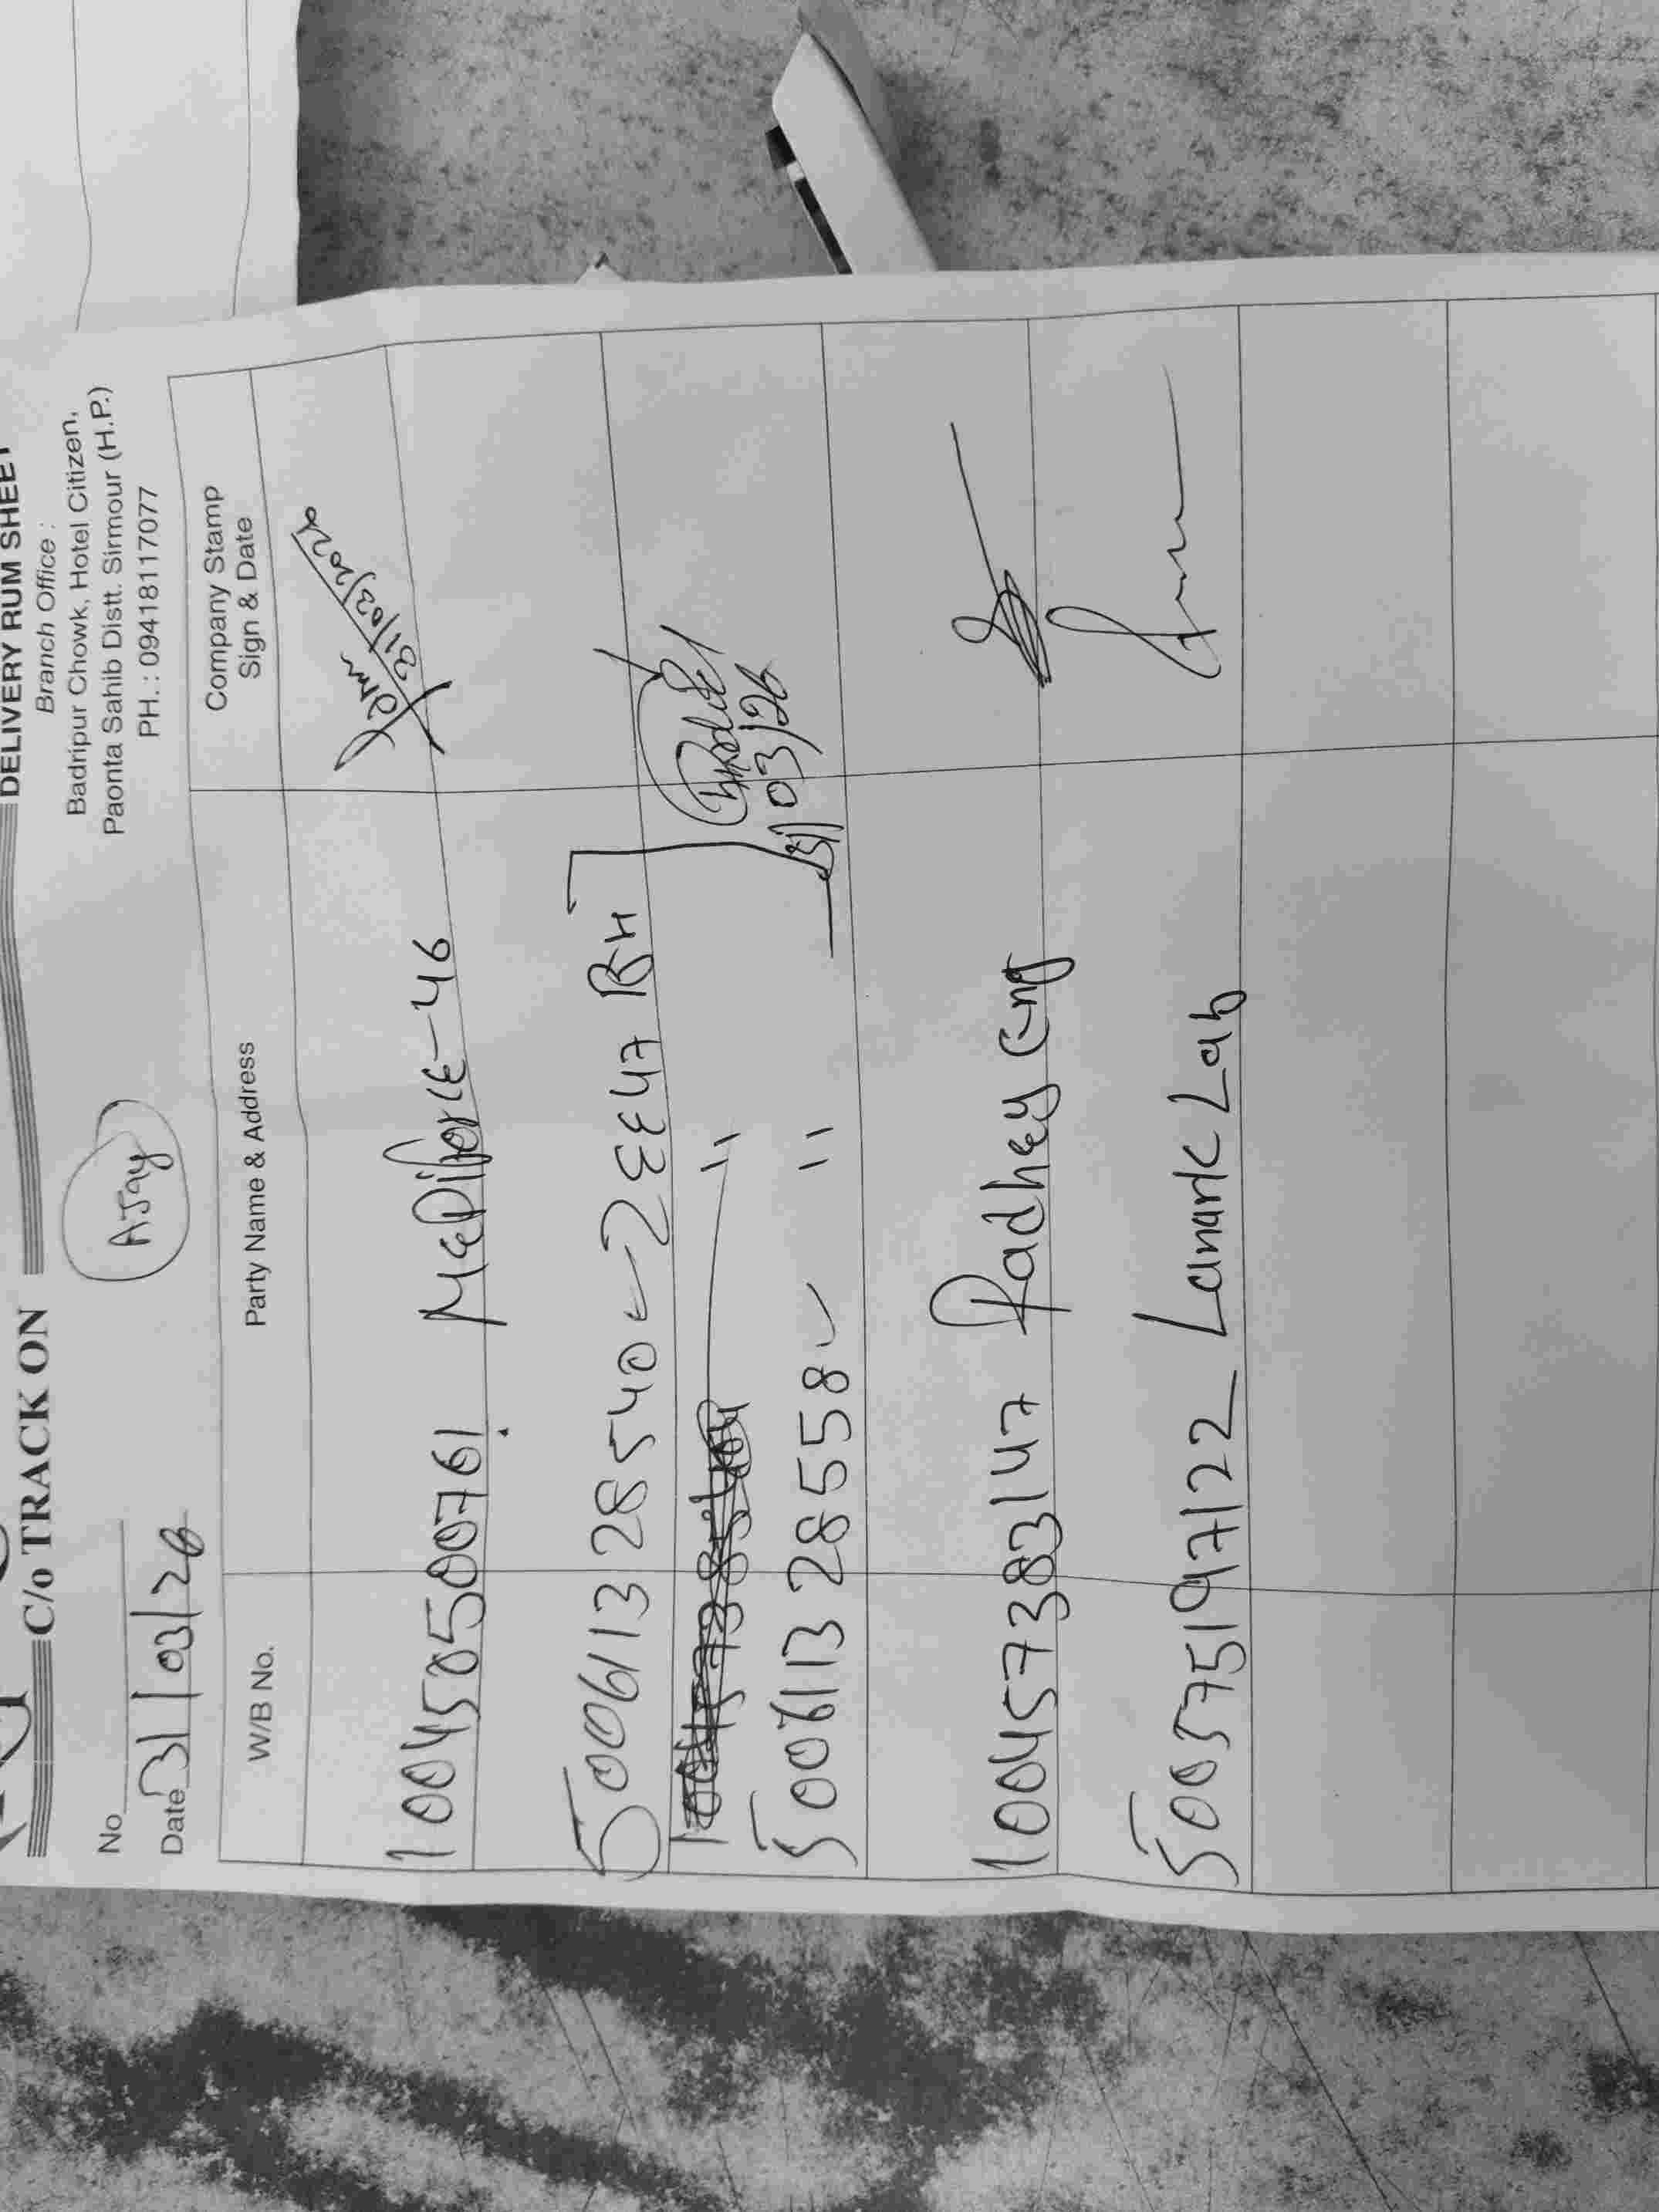 C/o TRACK ON
DELIVERY RUM SHEET
Branch Office :
Badripur Chowk, Hotel Citizen,
Paonta Sahib Distt. Sirmour (H.P.)
PH. : 09418117077
No
Ajay
Date 31/03/26
W/B No. Party Name & Address Company Stamp Sign & Date
100450500761 MEDiforcE-46
31/03/2026
500611328540 2EE47 BH
" 03/26
500611328558 "
100457383147 Radhey Eng
500575197122 Lanark Lab